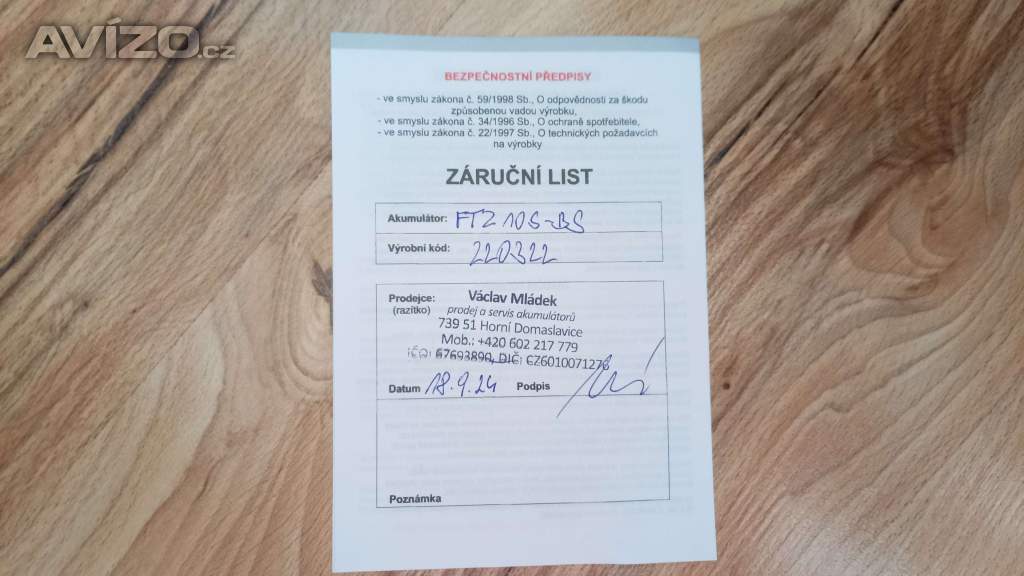 AVÍZO.cz
BEZPEČNOSTNÍ PŘEDPISY
- ve smyslu zákona č. 59/1998 Sb., O odpovědnosti za škodu
způsobenou vadou výrobku,
- ve smyslu zákona č. 34/1996 Sb., O ochraně spotřebitele,
- ve smyslu zákona č. 22/1997 Sb., O technických požadavcích
na výrobky
ZÁRUČNÍ LIST
Akumulátor: FTZ 10S-BS
Výrobní kód: 220322
Prodejce: Václav Mládek
(razítko) prodej a servis akumulátorů
739 51 Horní Domaslavice
Mob.: +420 602 217 779
IČO: 67693890, DIČ: CZ6010071276
Datum 18.9.24 Podpis
Poznámka